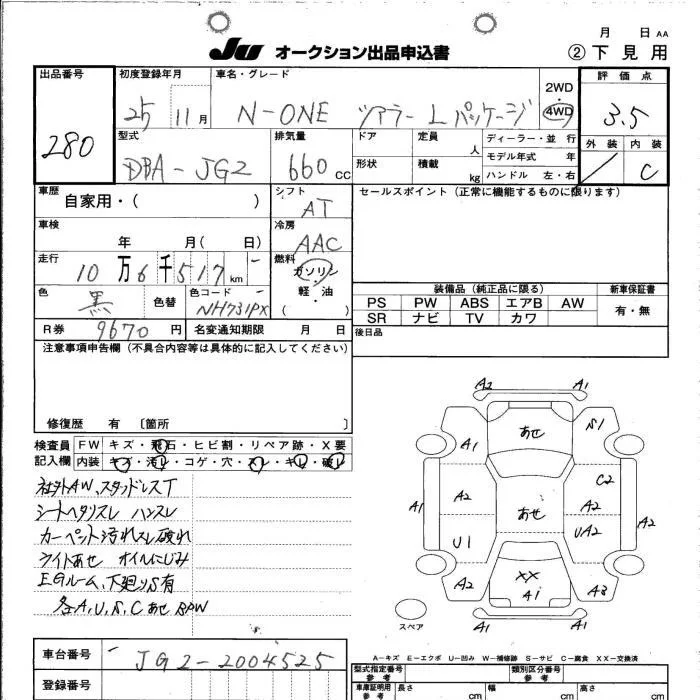 月 日 AA
JU オークション出品申込書 ② 下見用
出品番号 初度登録年月 車名・グレード 2WD・4WD 評価点
280 25 11月 N-ONE ツアラー Lパッケージ 3.5
型式 排気量 ドア 定員 人 ディーラー・並 行 外装 内装
DBA-JG2 660cc 形状 積載 kg モデル年式 年 C
ハンドル 左・右
車歴 自家用・( ) シフト AT セールスポイント (正常に機能するものに限ります)
車検 年 月( 日) 冷房 AAC
走行 10万6千517km 燃料 ガソリン・軽・油 ( )
装備品 (純正品に限る) 新車保証書
色 黒 色替 色コード NH731PX PS PW ABS エアB AW 有・無
SR ナビ TV カワ
R券 9670円 名変通知期限 月 日 後日品
注意事項申告欄 (不具合内容等は具体的に記入してください)
修復歴 有 〔箇所 〕
検査員記入欄 FW キズ・飛石・ヒビ割・リペア跡・X要
内装 キズ・汚レ・コゲ・穴・スレ・キレ・破レ
社外AW、スタッドレスT
シートヘタリスレ ハンスレ
カーペット汚れスレ破れ
ライトあせ オイルにじみ
EGルーム、下廻りS有
各A,U,S,Cあせ BPW
A2 A1
あせ S1
A1
C2
A1 A2 A2 A2
あせ
U1 UA2
XX
A2 A1 A3
A1 A1
スペア
A-キズ E-エクボ U-凹み W-補修跡 S-サビ C-腐食 XX-交換済
車台番号 JG2-2004525
登録番号
型式指定番号 参考 類別区分番号 参考
車庫証明用 参考 長さ cm 幅 cm 高さ cm